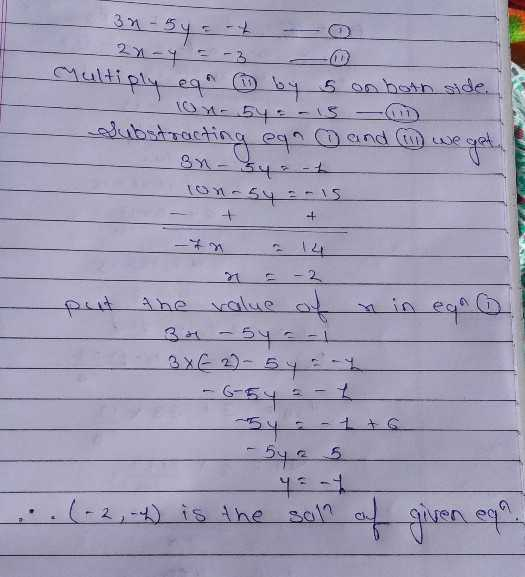 3x - 5y = -1 — (i)
2x - y = -3 — (ii)
Multiply eqn (ii) by 5 on both side.
10x - 5y = -15 — (iii)
Substracting eqn (i) and (iii) we get
3x - 5y = -1
10x - 5y = -15
- + +
-7x = 14
x = -2
put the value of x in eqn (i)
3x - 5y = -1
3x(-2) - 5y = -1
-6-5y = -1
-5y = -1 + 6
-5y = 5
y = -1
∴ (-2, -1) is the soln of given eqn.